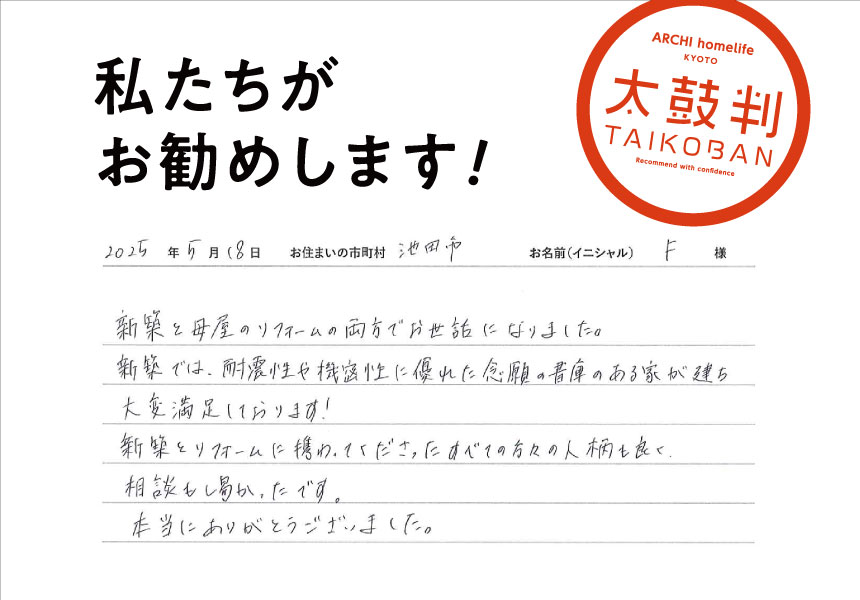 私たちが
お勧めします!
ARCHI homelife
KYOTO
太鼓判
TAIKOBAN
Recommend with confidence
2025年5月18日 お住まいの市町村 池田市 お名前(イニシャル) F 様
新築と母屋のリフォームの両方でお世話になりました。
新築では、耐震性や機密性に優れた念願の書庫のある家が建ち
大変満足しております!
新築とリフォームに携わってくださったすべての方々の人柄も良く、
相談もし易かったです。
本当にありがとうございました。